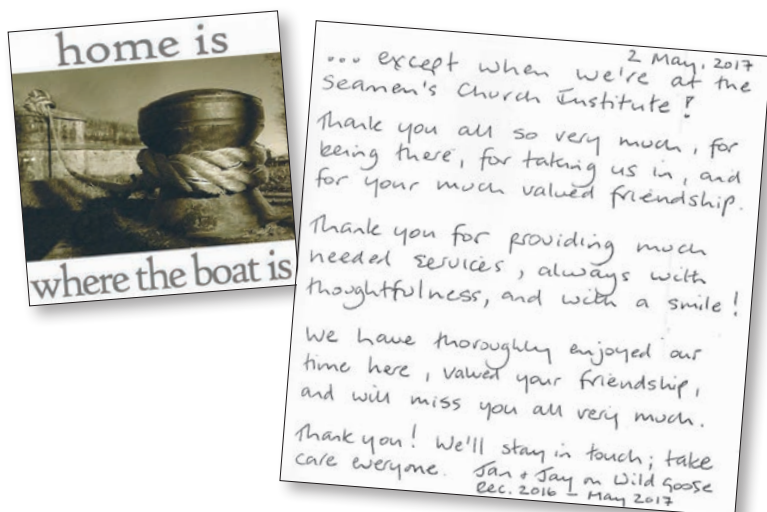 home is
where the boat is
2 May, 2017
... except when we're at the
Seamen's Church Institute!
Thank you all so very much, for
being there, for taking us in, and
for your much valued friendship.
Thank you for providing much
needed services, always with
thoughtfulness, and with a smile!
We have thoroughly enjoyed our
time here, valued your friendship,
and will miss you all very much.
Thank you! We'll stay in touch; take
care everyone. Jan + Jay on Wild Goose
Dec. 2016 – May 2017